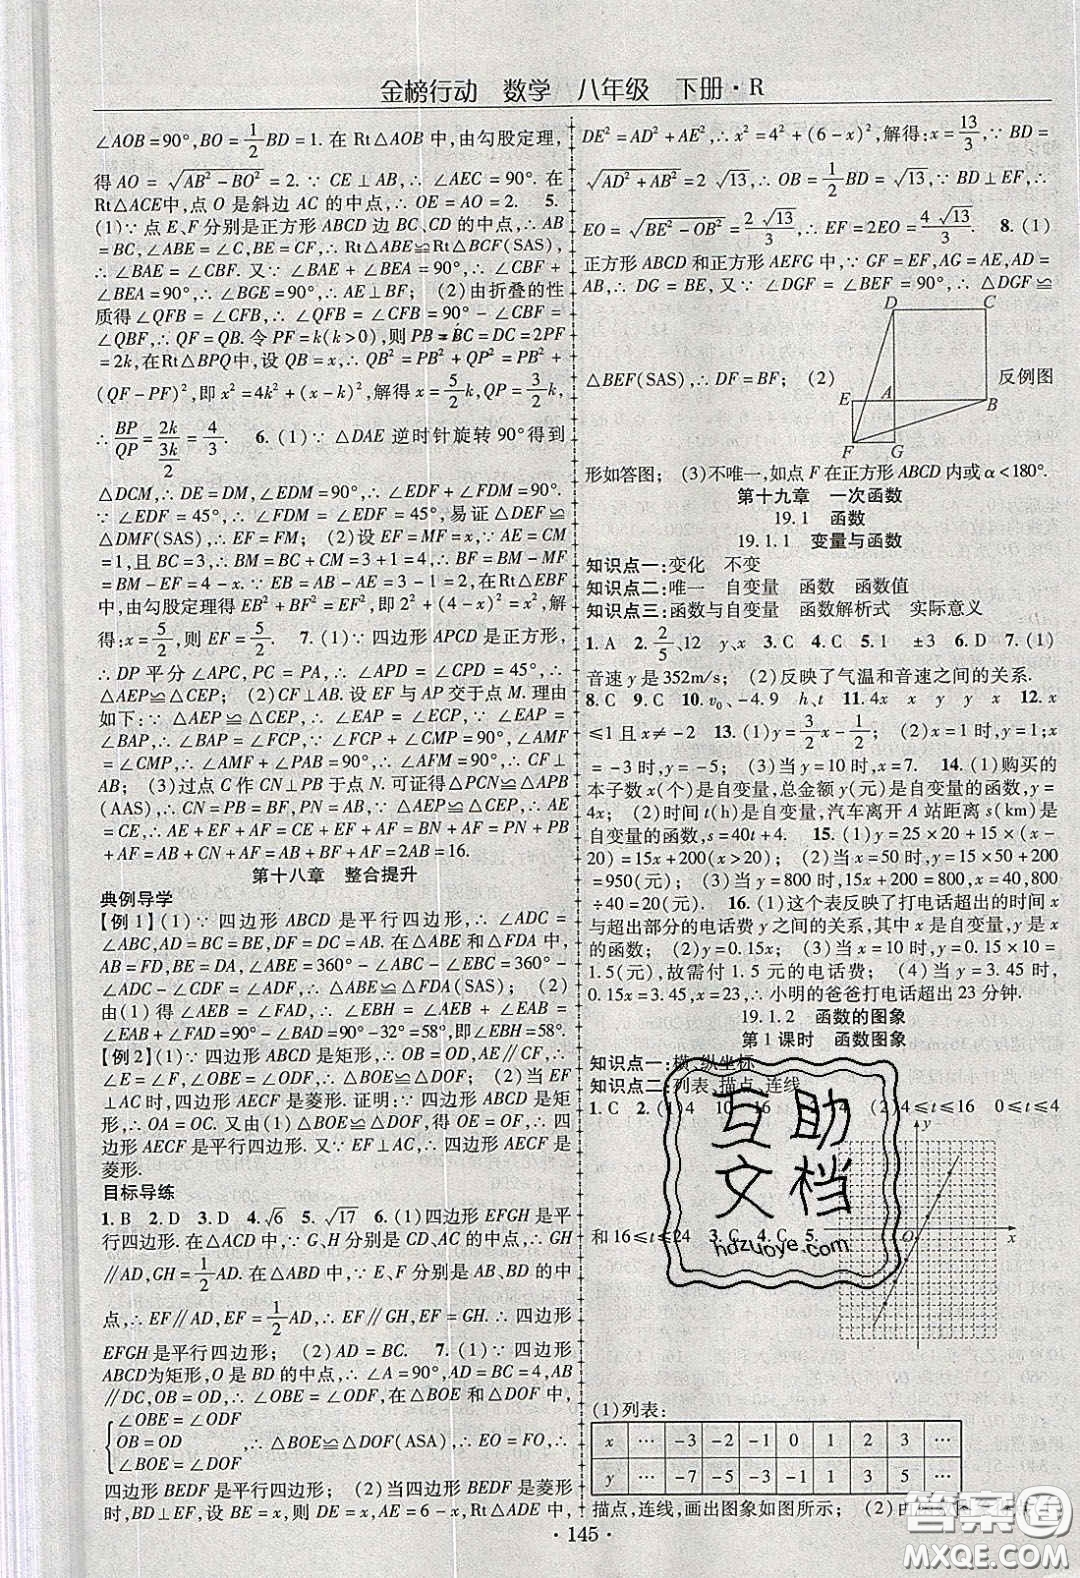 金榜行动 数学 八年级 下册·R
∠AOB=90°,BO=1/2BD=1. 在 Rt△AOB 中,由勾股定理,
得 AO=√(AB²-BO²)=2. ∵ CE⊥AB,∴ ∠AEC=90°. 在
Rt△ACE中,点 O 是斜边 AC 的中点,∴ OE=AO=2. 5.
(1)∵ 点 E、F 分别是正方形 ABCD 边 BC、CD 的中点,∴ AB
=BC,∠ABE=∠C,BE=CF,∴ Rt△ABE≌Rt△BCF(SAS),∴
∠BAE=∠CBF. 又∵ ∠BAE+∠BEA=90°,∴ ∠CBF+
∠BEA=90°,∴ ∠BGE=90°,∴ AE⊥BF; (2)由折叠的性
质得∠QFB=∠CFB,∴ 90°-∠QFB=90°-∠CFB=
∠QBF,∴ QF=QB. 令 PF=k(k>0),则 PB=BC=DC=2PF
=2k,在Rt△BPQ中,设 QB=x,∴ QB²=PB²+QP²=PB²+
(QF-PF)²,即 x²=4k²+(x-k)²,解得 x=5/2k,QP=3/2k,
∴ BP/QP=2k/(3k/2)=4/3. 6. (1)∵ △DAE 逆时针旋转 90°得到
△DCM,∴ DE=DM,∠EDM=90°,∴ ∠EDF+∠FDM=90°.
∵ ∠EDF=45°,∴ ∠FDM=∠EDF=45°,易证△DEF≌
△DMF(SAS),∴ EF=FM; (2)设 EF=MF=x,∵ AE=CM
=1,且 BC=3,∴ BM=BC+CM=3+1=4,∴ BF=BM-MF
=BM-EF=4-x. ∵ EB=AB-AE=3-1=2,在Rt△EBF
中,由勾股定理得 EB²+BF²=EF²,即 2²+(4-x)²=x²,解
得:x=5/2,则 EF=5/2. 7. (1)∵ 四边形 APCD 是正方形,
∴ DP 平分∠APC,PC=PA,∴ ∠APD=∠CPD=45°,∴
△AEP≌△CEP; (2)CF⊥AB. 设 EF 与 AP 交于点 M. 理由
如下:∵ △AEP≌△CEP,∴ ∠EAP=∠ECP,∵ ∠EAP=
∠BAP,∴ ∠BAP=∠FCP,∵ ∠FCP+∠CMP=90°,∠AMF
=∠CMF,∴ ∠AMF+∠PAB=90°,∴ ∠AFM=90°,∴ CF
⊥AB; (3)过点 C 作 CN⊥PB 于点 N. 可证得△PCN≌△APB
(AAS),∴ CN=PB=BF,PN=AB,∵ △AEP≌△CEP,∴ AE
=CE,∴ AE+EF+AF=CE+EF+AF=BN+AF=PN+PB
+AF=AB+CN+AF=AB+BF+AF=2AB=16.
第十八章 整合提升
典例导学
【例 1】(1)∵ 四边形 ABCD 是平行四边形,∴ ∠ADC=
∠ABC,AD=BC=BE,DF=DC=AB. 在△ABE 和△FDA 中,
AB=FD,BE=DA,∠ABE=360°-∠ABC-∠EBC=360°-
∠ADC-∠CDF=∠ADF,∴ △ABE≌△FDA(SAS); (2)
由(1)得 ∠AEB=∠FAD,∵ ∠EBH=∠AEB+∠EAB=
∠EAB+∠FAD=90°-∠EAF=90°-32°=58°,即∠EBH=58°.
【例 2】(1)∵ 四边形 ABCD 是矩形,∴ OB=OD,AE∥CF,∴
∠E=∠F,∠OBE=∠ODF,∴ △BOE≌△DOF; (2)当 EF
⊥AC 时,四边形 AECF 是菱形. 证明:∵ 四边形 ABCD 是矩
形,∴ OA=OC. 又由(1)△BOE≌△DOF得,OE=OF,∴ 四
边形 AECF 是平行四边形. 又∵ EF⊥AC,∴ 四边形 AECF 是
菱形.
目标导练
1. B 2. D 3. D 4.√6 5.√17 6. (1)四边形 EFGH 是平
行四边形. 在△ACD 中,∵ G、H 分别为 CD、AC 的中点,∴ GH
∥AD,GH=1/2AD. 在△ABD 中,∵ E、F 分别是 AB、BD 的中
点,∴ EF∥AD,EF=1/2AD,∴ EF∥GH,EF=GH,∴ 四边形
EFGH 是平行四边形; (2)AD=BC. 7. (1)∵ 四边形
ABCD为矩形,O 是 BD 的中点,∴ ∠A=90°,AD=BC=4,AB
∥DC,OB=OD,∴ ∠OBE=∠ODF. 在△BOE 和△DOF 中,
∠OBE=∠ODF
OB=OD
∠BOE=∠DOF
,∴ △BOE≌△DOF(ASA),∴ EO=FO,∴
四边形 BEDF 是平行四边形; (2)当四边形 BEDF 是菱形
时,BD⊥EF,设 BE=x,则 DE=x,AE=6-x,Rt△ADE 中,
DE²=AD²+AE²,∴ x²=4²+(6-x)²,解得:x=13/3,∵ BD=
√(AD²+AB²)=2√13,∴ OB=1/2BD=√13,∵ BD⊥EF,∴
EO=√(BE²-OB²)=2√13/3,∴ EF=2EO=4√13/3. 8. (1)
正方形 ABCD 和正方形 AEFG 中,∵ GF=EF,AG=AE,AD=
AB,∴ DG=BE,又∵ ∠DGF=∠BEF=90°,∴ △DGF≌
△BEF(SAS),∴ DF=BF; (2)
D C E A B F G
反例图
形如答图; (3)不唯一,如点 F 在正方形 ABCD 内或 α<180°.
第十九章 一次函数
19.1 函数
19.1.1 变量与函数
知识点一:变化 不变
知识点二:唯一 自变量 函数 函数值
知识点三:函数与自变量 函数解析式 实际意义
1. A 2. 2/5、12 y、x 3. C 4. C 5. 1 ±3 6. D 7. (1)
音速 y 是 352m/s; (2)反映了气温和音速之间的关系.
8. C 9. C 10. v₀、-4.9 h、t 11. 4x x y y x 12. x
≤1 且 x≠-2 13. (1)y=3/2x-1/2; (2)x=1 时,y=1;x
=-3 时,y=-5; (3)当 y=10 时,x=7. 14. (1)购买的
本子数 x(个)是自变量,总金额 y(元)是自变量的函数,y=
4x; (2)时间 t(h)是自变量,汽车离开 A 站距离 s(km)是
自变量的函数,s=40t+4. 15. (1)y=25×20+15×(x-
20)=15x+200(x>20); (2)当 x=50 时,y=15×50+200
=950(元); (3)当 y=800 时,15x+200=800,x=40,800
÷40=20(元). 16. (1)这个表反映了打电话超出的时间 x
与超出部分的电话费 y 之间的关系,其中 x 是自变量,y 是 x
的函数; (2)y=0.15x; (3)当 x=10 时,y=0.15×10=
1.5(元),故需付 1.5 元的电话费; (4)当 y=3.45 时,
0.15x=3.45,x=23,∴ 小明的爸爸打电话超出 23 分钟.
19.1.2 函数的图象
第 1 课时 函数图象
知识点一:横、纵坐标
知识点二:列表、描点、连线
1. C 2. (1)4 10 16 14 (2)4≤t≤16 0≤t≤4
和 16≤t≤24 3. C 4. C 5.
y O x
(1)列表:
x … -3 -2 -1 0 1 2 3 …
y … -7 -5 -3 -1 1 3 5 …
描点,连线,画出图象如图所示; (2)由
·145·
互助文档
hdzuoye.com
答案圈
MXQE.COM